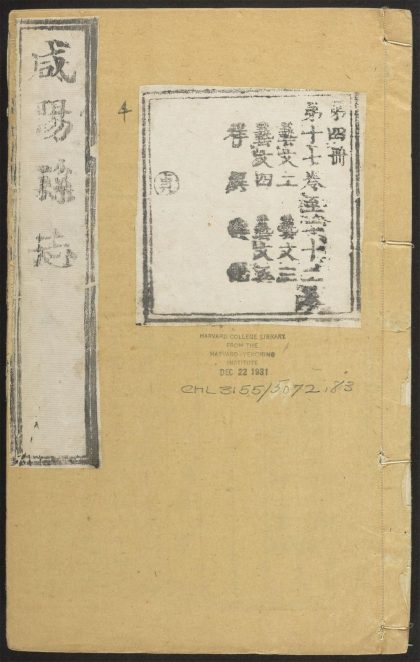 咸陽縣志
4
第四冊
第十七卷至二十二卷
藝文二 藝文三
藝文四 藝文五
祥異
貞
HARVARD COLLEGE LIBRARY
FROM THE
HARVARD-YENCHING
INSTITUTE
DEC 22 1931
CHL 3155/5072.83